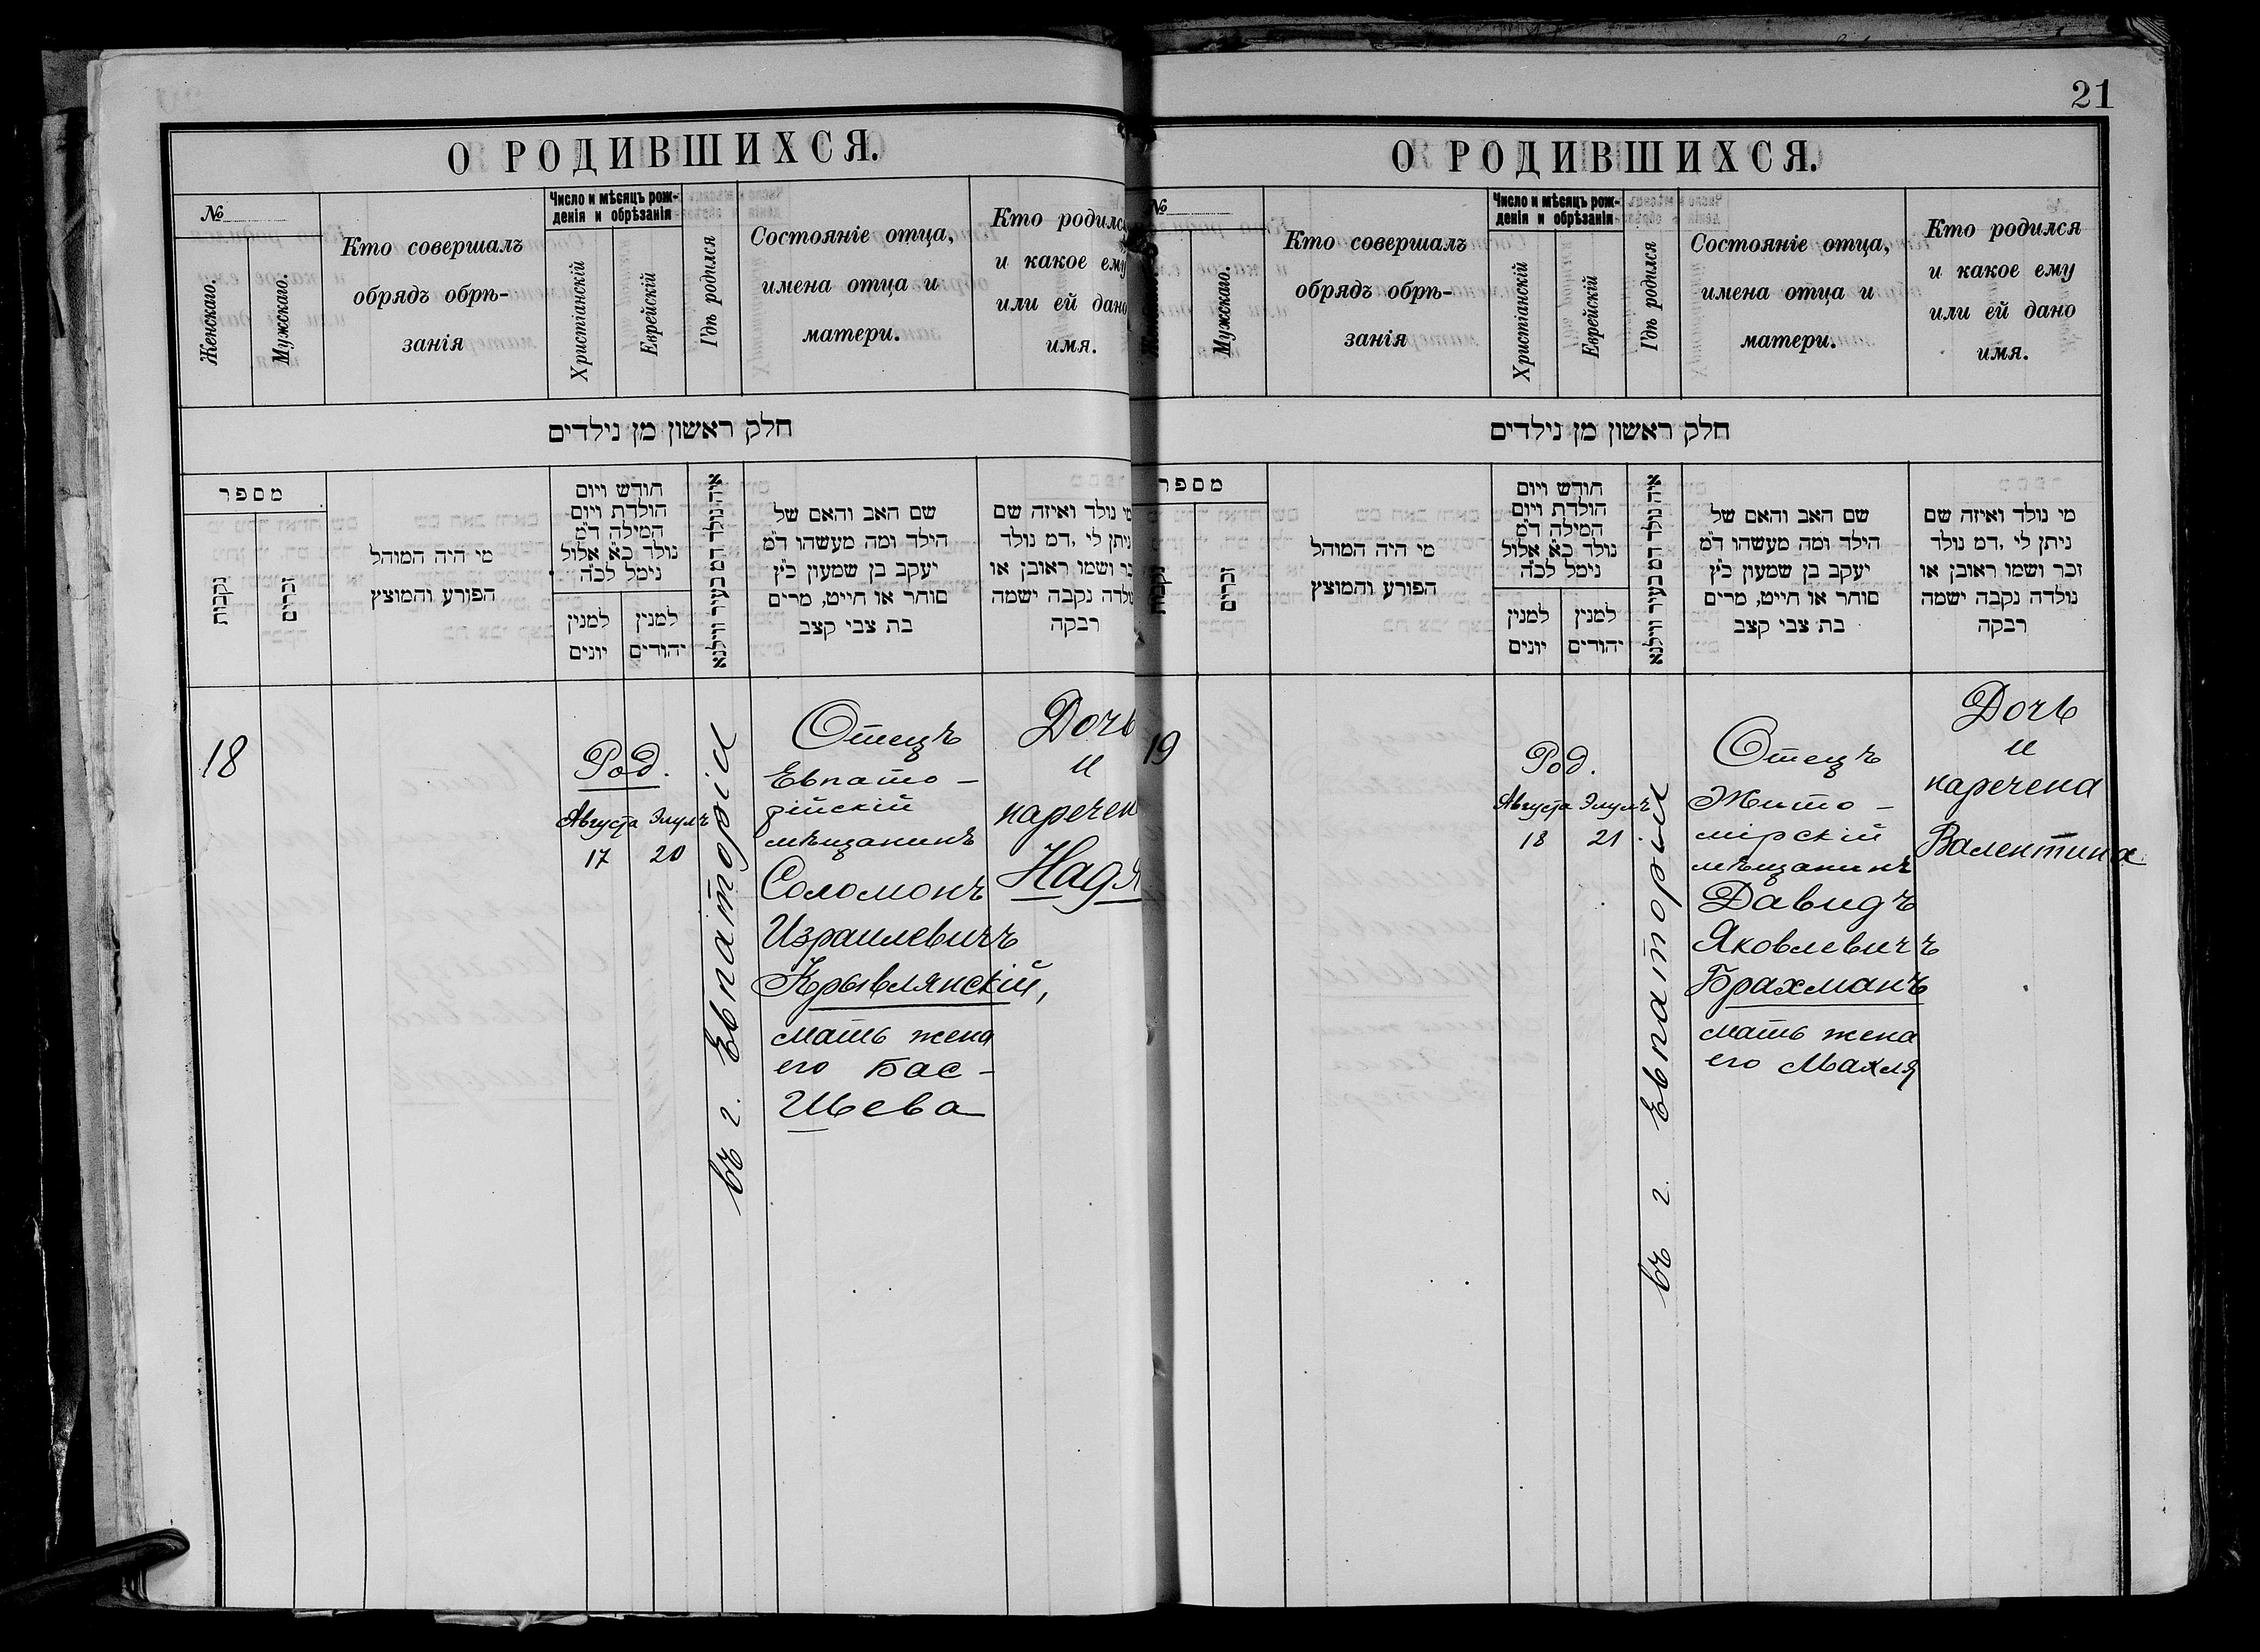 О РОДИВШИХСЯ.
№
Женскаго.
Мужскаго.
Кто совершалъ
обрядъ обрѣ-
занія
Число и мѣсяцъ рож-
денія и обрѣзанія
Христіанскій
Еврейскій
Гдѣ родился
Состояніе отца,
имена отца и
матери.
Кто родилс
и какое ему
или ей дано
имя.
חלק ראשון מן נילדים
מספר
נקבות
זכרים
מי היה המוהל
הפורע והמוצץ
חודש ויום
הולדת ויום
המילה ד״מ
נולד כ״א אלול
נימל לכ״ה
למנין
יונים
למנין
יהודים
איה נולד דמ בעיר ווילנא
שם האב והאם של
הילד ומה מעשהו ד״מ
יעקב בן שמעון כ״ץ
סוחר או חייט, מרים
בת צבי קצב
מי נולד ואיזה שם
ניתן לי ,דמ נולד
כר ושמו ראובן או
ולדה נקבה ישמה
רבקה
18
Род.
Августа
17
Элулъ
20
въ г. Евпаторіи
Отецъ
Евпато-
рійскій
мѣщанинъ
Соломонъ
Израилевичъ
Крывлянскій,
мать жена
его Бас-
Шева
Дочь
и
наречен
Надя
21
О РОДИВШИХСЯ.
№
Женскаго.
Мужскаго.
Кто совершалъ
обрядъ обрѣ-
занія
Число и мѣсяцъ рож-
денія и обрѣзанія
Христіанскій
Еврейскій
Гдѣ родился
Состояніе отца,
имена отца и
матери.
Кто родился
и какое ему
или ей дано
имя.
חלק ראשון מן נילדים
מספר
נקבות
זכרים
מי היה המוהל
הפורע והמוצץ
חודש ויום
הולדת ויום
המילה ד״מ
נולד כ״א אלול
נימל לכ״ה
למנין
יונים
למנין
יהודים
איה נולד דמ בעיר ווילנא
שם האב והאם של
הילד ומה מעשהו ד״מ
יעקב בן שמעון כ״ץ
סוחר או חייט, מרים
בת צבי קצב
מי נולד ואיזה שם
ניתן לי ,דמ נולד
זכר ושמו ראובן או
נולדה נקבה ישמה
רבקה
19
Род.
Августа
18
Элулъ
21
въ г. Евпаторіи
Отецъ
Жито-
мірскій
мѣщанинъ
Давидъ
Яковлевичъ
Брахманъ
мать жена
его Махля
Дочь
и
наречена
Валентина